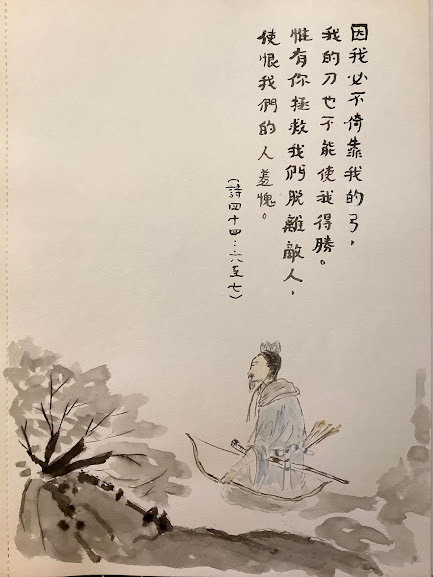 因我必不倚靠我的弓，
我的刀也不能使我得勝。
惟有你拯救我們脫離敵人，
使恨我們的人羞愧。
（詩四十四：六至七）